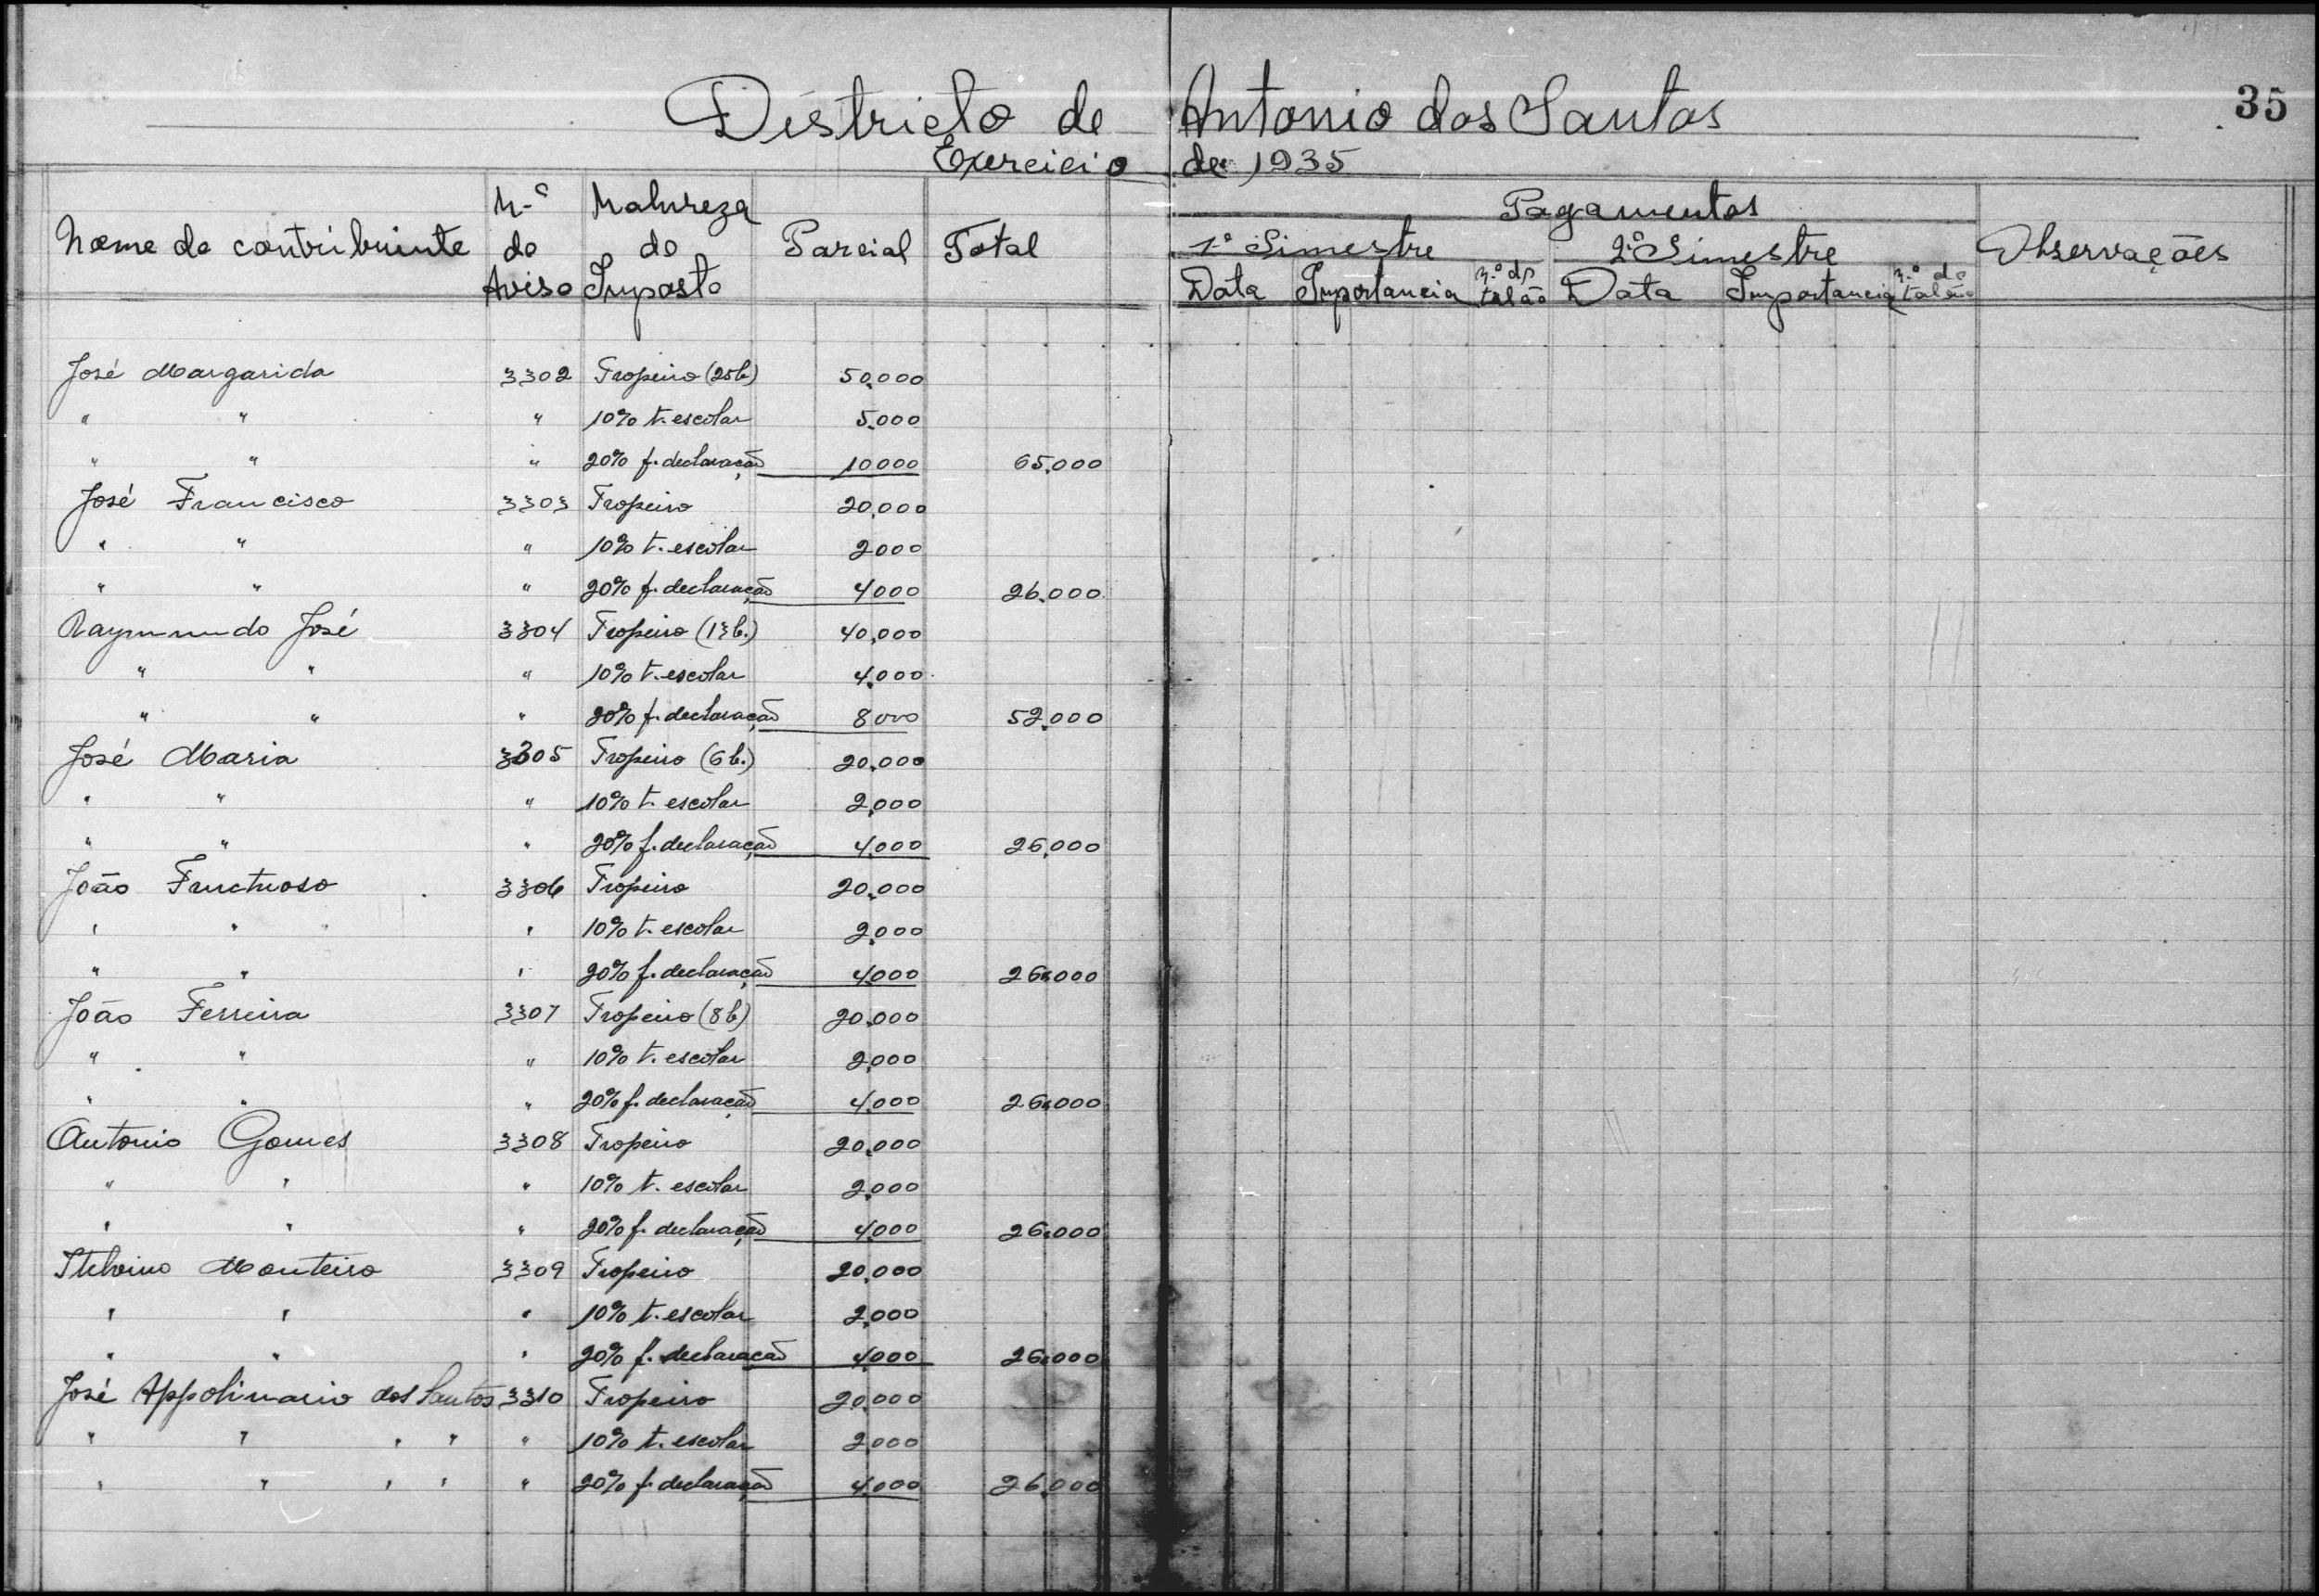 Districto de Antonio dos Santos
35
Exercicio de 1935
Nome do contribuinte
N.º do Aviso
Natureza do Imposto
Parcial
Total
Pagamentos
1º Simestre
2º Simestre
Data
Importancia
n.º do talão
Data
Importancia
n.º do talão
Observações
José Margarida 3302 Tropeiro (25b) 50.000
" " " 10% t. escolar 5.000
" " " 20% f. declaração 10000 65.000
José Francisco 3303 Tropeiro 20.000
" " " 10% t. escolar 2000
" " " 20% f. declaração 4000 26.000
Raymundo José 3304 Tropeiro (13b.) 40.000
" " " 10% t. escolar 4.000
" " " 20% f. declaração 8000 52.000
José Maria 3305 Tropeiro (6b.) 20.000
" " " 10% t. escolar 2.000
" " " 20% f. declaração 4.000 26.000
João Fructuoso 3306 Tropeiro 20.000
" " " 10% t. escolar 2.000
" " " 20% f. declaração 4.000 26.000
João Ferreira 3307 Tropeiro (8b) 20.000
" " " 10% t. escolar 2.000
" " " 20% f. declaração 4.000 26.000
Antonio Gomes 3308 Tropeiro 20.000
" " " 10% t. escolar 2.000
" " " 20% f. declaração 4.000 26.000
Itelvino Monteiro 3309 Tropeiro 20.000
" " " 10% t. escolar 2.000
" " " 20% f. declaração 4.000 26.000
José Appolinario dos Santos 3310 Tropeiro 20.000
" " " " " 10% t. escolar 2.000
" " " " " 20% f. declaração 4.000 26.000